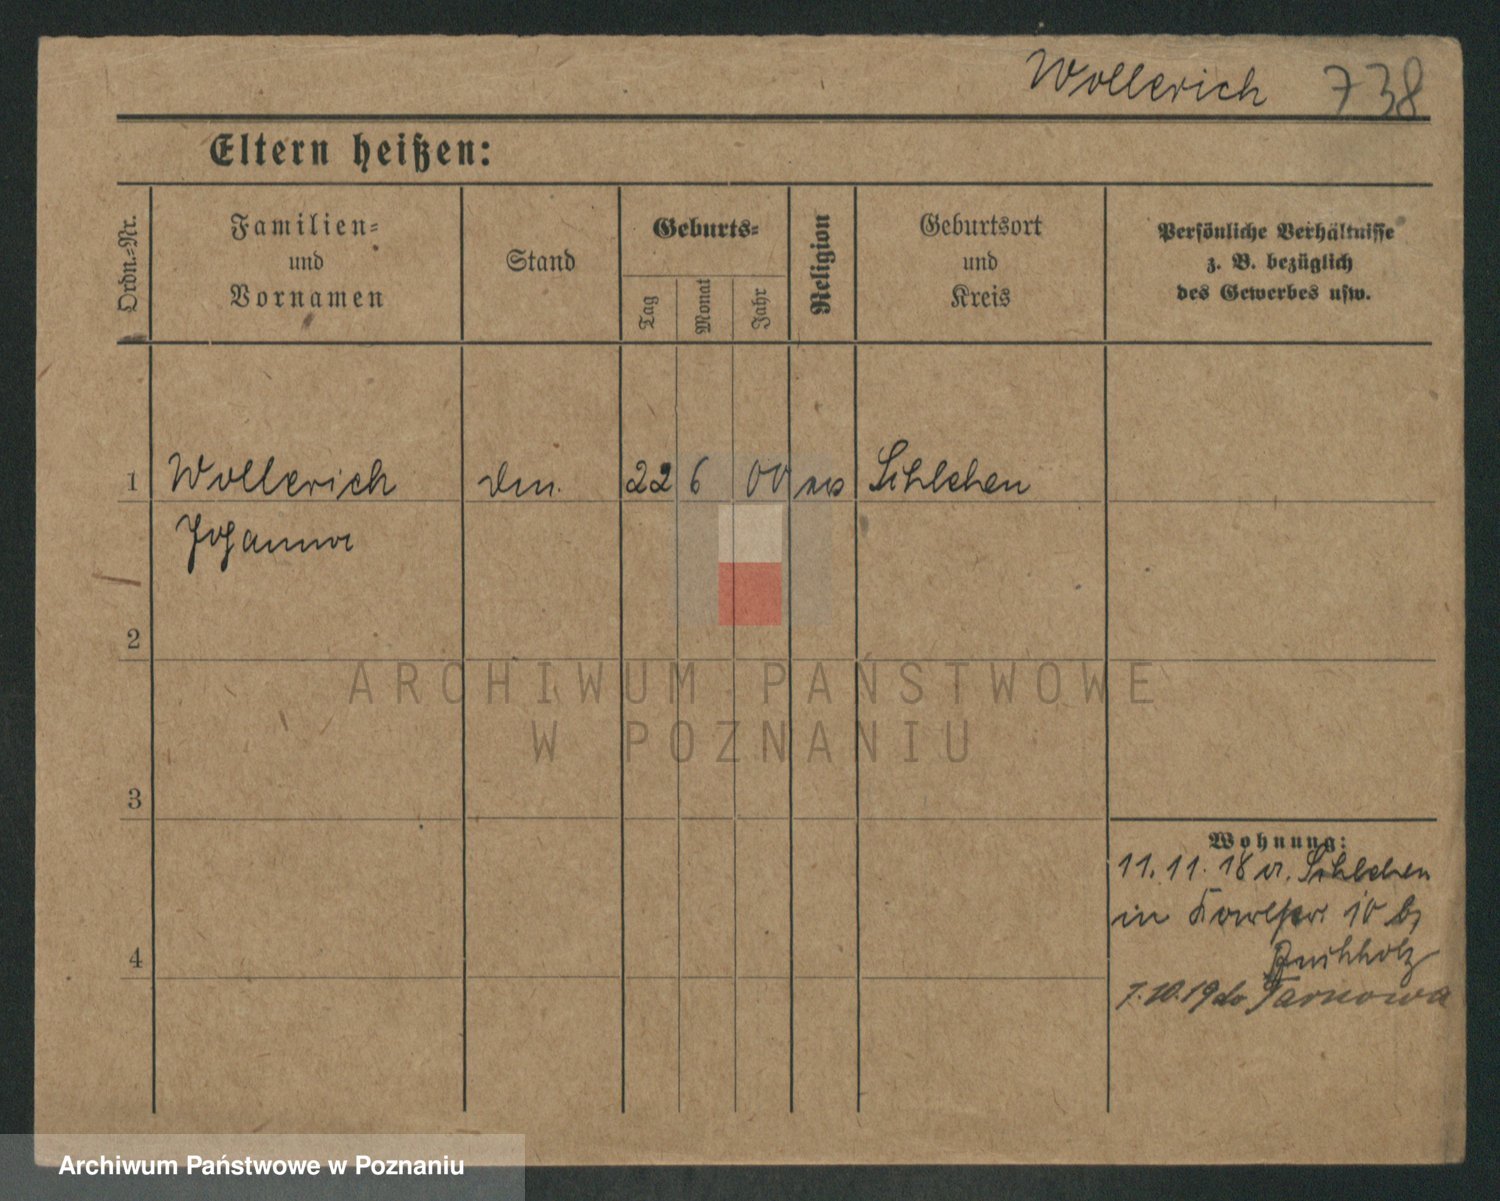 Wollerich 738
Eltern heißen:
Ordn.-Nr.
Familien-
und
Vornamen
Stand
Geburts-
Tag
Monat
Jahr
Religion
Geburtsort
und
Kreis
Persönliche Verhältnisse
z. B. bezüglich
des Gewerbes usw.
1 Wollerich 22 6 00
Johanna
2
3
4
Wohnung:
11. 11. 18
in 10 b/
Buchholz
7.10.19 Tarnowa
ARCHIWUM PAŃSTWOWE
W POZNANIU
Archiwum Państwowe w Poznaniu